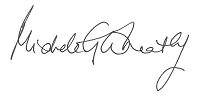 Michele G. Wheatly